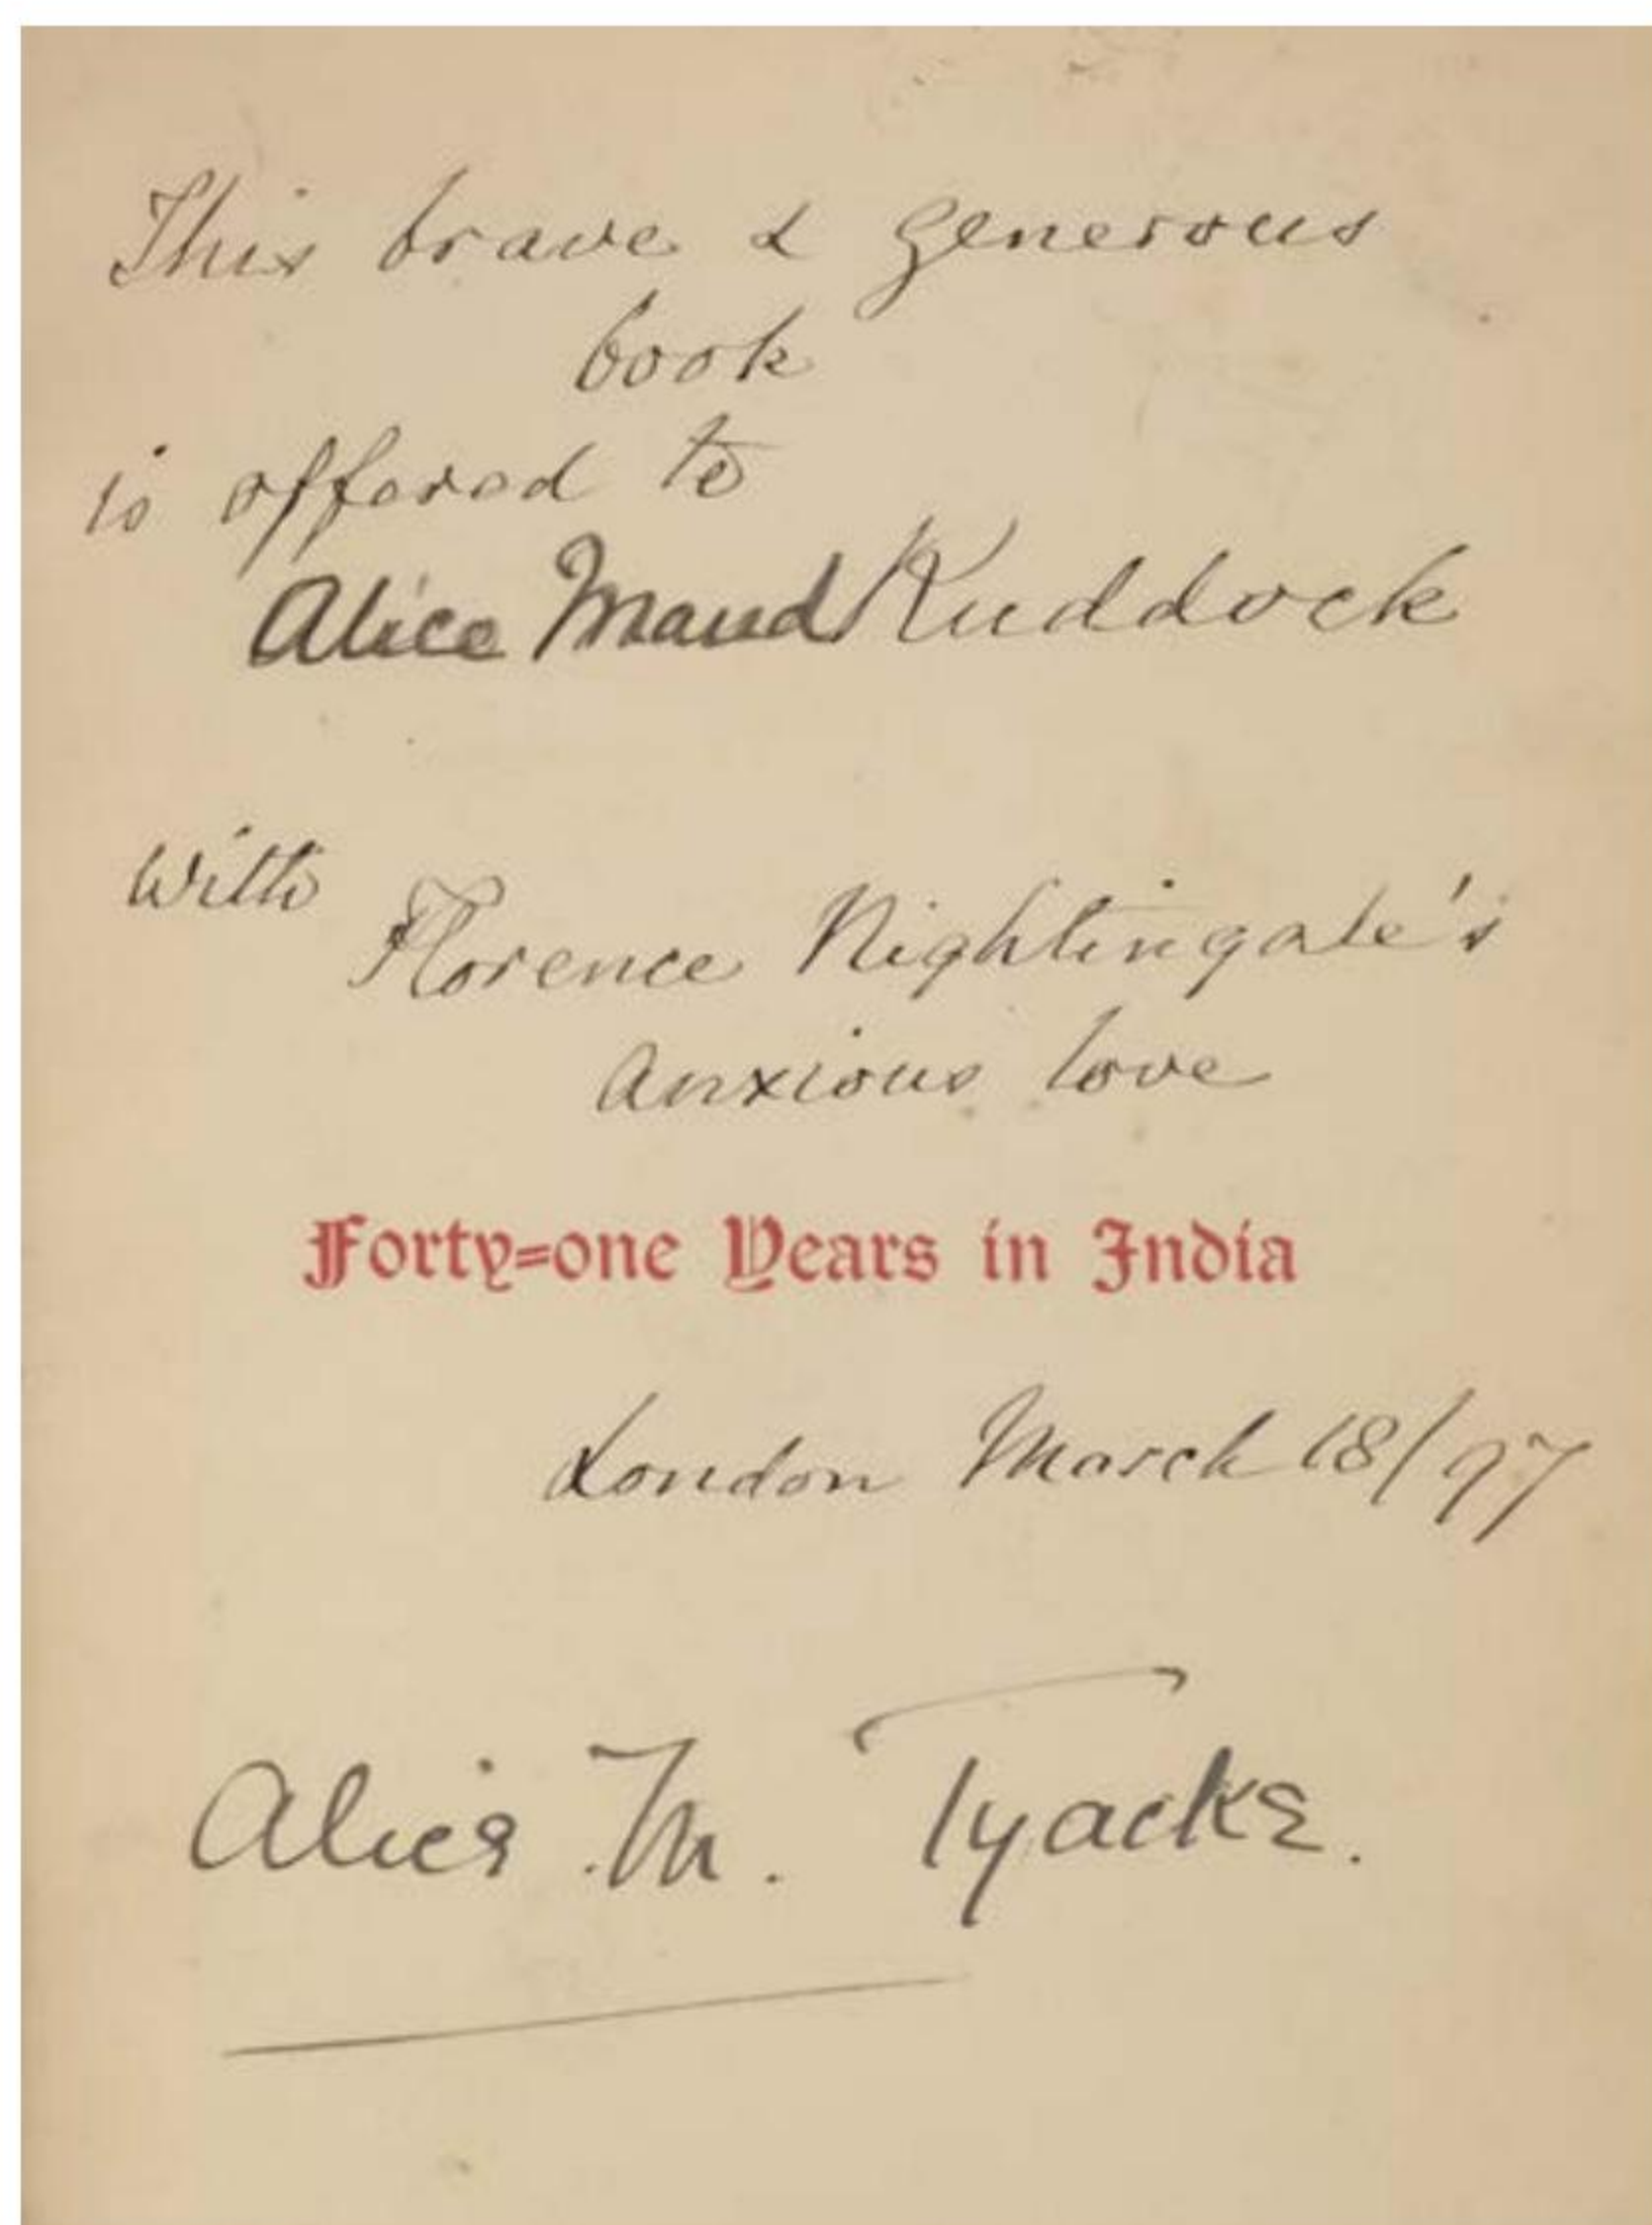 This brave & generous
book
is offered to
Alice Maud Ruddock
With
Florence Nightingale's
anxious love
Forty-one Years in India
London March 18/97
Alice M. Tyacke.